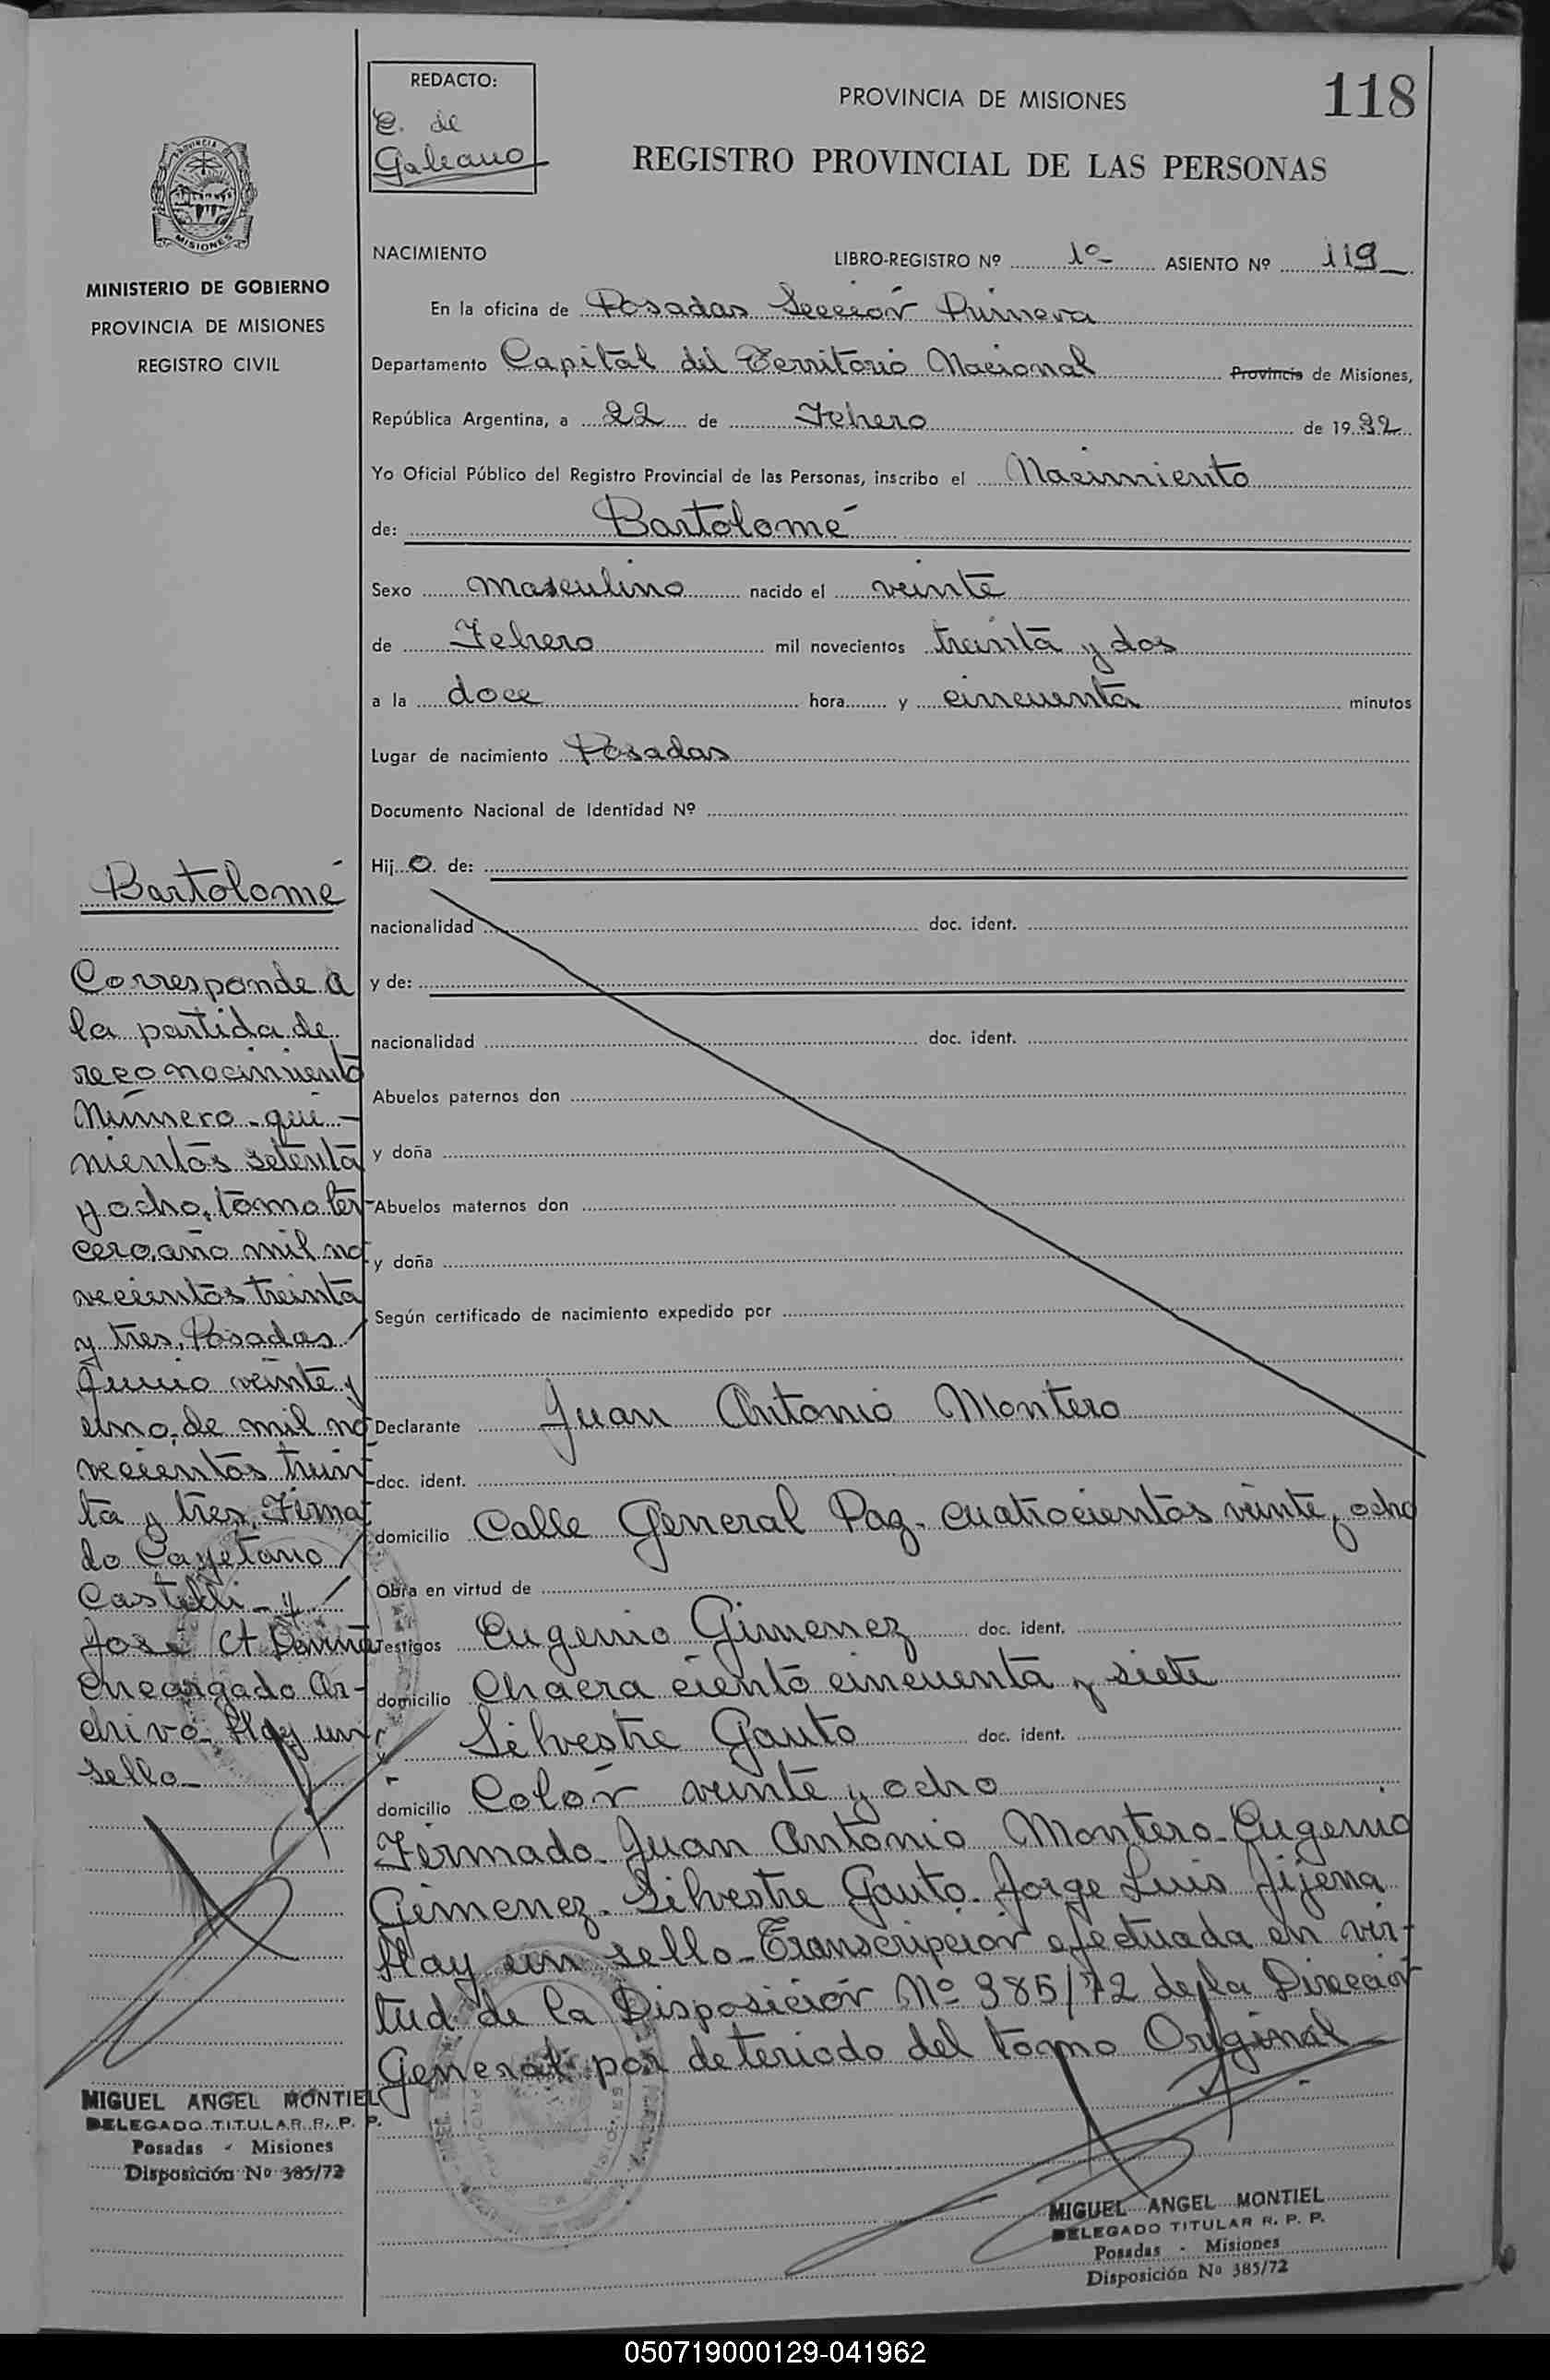 REDACTO:
E. de
Galeano
PROVINCIA DE MISIONES
118
REGISTRO PROVINCIAL DE LAS PERSONAS
PROVINCIA DE
MISIONES
MINISTERIO DE GOBIERNO
PROVINCIA DE MISIONES
REGISTRO CIVIL
NACIMIENTO LIBRO-REGISTRO Nº 1º- ASIENTO Nº 119
En la oficina de Posadas Sección Primera
Departamento Capital del Territorio Nacional Provincia de Misiones,
República Argentina, a 22 de Febrero de 1932
Yo Oficial Público del Registro Provincial de las Personas, inscribo el Nacimiento
de: Bartolomé
Sexo masculino nacido el veinte
de Febrero mil novecientos treinta y dos
a la doce hora y cincuenta minutos
Lugar de nacimiento Posadas
Documento Nacional de Identidad Nº
Hij o de:
nacionalidad doc. ident.
y de:
nacionalidad doc. ident.
Abuelos paternos don
y doña
Abuelos maternos don
y doña
Según certificado de nacimiento expedido por
Declarante Juan Antonio Montero
doc. ident.
domicilio Calle General Paz. cuatrocientos veinte y ocho
Obra en virtud de
Testigos Eugenio Gimenez doc. ident.
domicilio Chacra ciento cincuenta y siete
y Silvestre Gauto doc. ident.
domicilio Colón veinte y ocho
Firmado. Juan Antonio Montero. Eugenio
Gimenez. Silvestre Gauto. Jorge Luis Jijena
Hay un sello. Transcripción efectuada en vir-
tud de la Disposición Nº 385/72 de la Dirección
General por deteriodo del tomo Original
MIGUEL ANGEL MONTIEL
DELEGADO TITULAR R. P. P.
Posadas - Misiones
Disposición Nº 385/72
Bartolomé
Corresponde a
la partida de
reconocimiento
Número qui-
nientos setenta
y ocho, tomo ter-
cero, año mil no-
vecientos treinta
y tres. Posadas
Junio veinte y
uno, de mil no-
vecientos trein-
ta y tres. Firma-
do Cayetano
Castelli - y
José A.
encargado Ar-
chivo. Hay un
sello
MIGUEL ANGEL MONTIEL
DELEGADO TITULAR R. P. P.
Posadas - Misiones
Disposición Nº 385/72
050719000129-041962